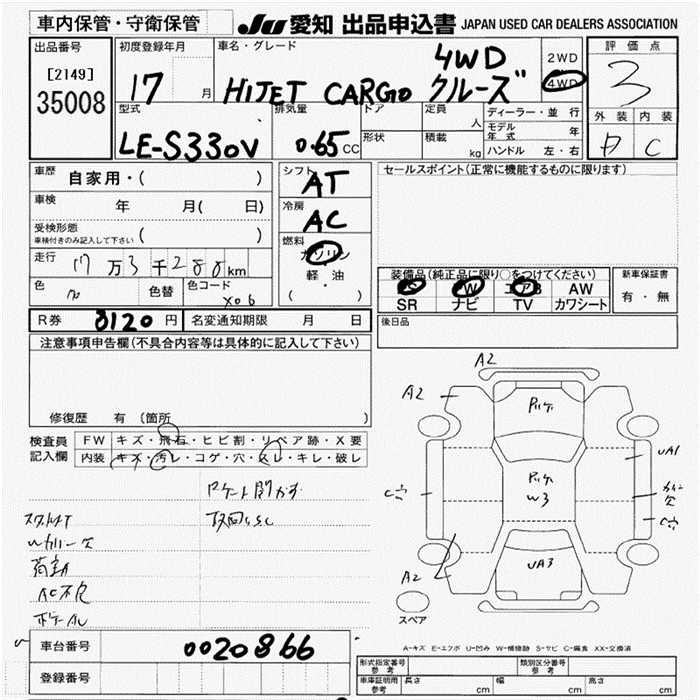 車内保管・守衛保管
JU 愛知 出品申込書 JAPAN USED CAR DEALERS ASSOCIATION
出品番号
[2149]
35008
初度登録年月
17 月
車名・グレード
4WD
HIJET CARGO クルーズ
2WD
4WD
評価点
3
外装 内装
C
型式
LE-S330V
排気量
0.65 CC
ドア
形状
定員
人
積載
kg
ディーラー・並行
モデル年式 年
ハンドル 左・右
車歴 自家用・( )
車検 年 月( 日)
受検形態
車検付きのみ記入して下さい ( )
走行 17 万 3 千 200 km
色 色替 色コード X06
シフト
AT
冷房
AC
燃料
ガソリン
軽油
( ・ )
セールスポイント(正常に機能するものに限ります)
装備品(純正品に限り○をつけてください)
PS PW エアB AW
SR ナビ TV カワシート
新車保証書
有・無
R券 8120 円 名変通知期限 月 日
後日品
注意事項申告欄(不具合内容等は具体的に記入して下さい)
修復歴 有 (箇所 )
検査員記入欄
FW キズ・飛石・ヒビ割・リペア跡・X要
内装 キズ・汚レ・コゲ・穴・スレ・キレ・破レ
AC不良
A2
A2
A2
W3
UA1
UA3
スペア
A-キズ E-エクボ U-凹み W-補修跡 S-サビ C-腐食 XX-交換済
車台番号 0020866
登録番号
形式指定番号 参考
類別区分番号 参考
車庫証明用 参考 長さ cm 幅 cm 高さ cm